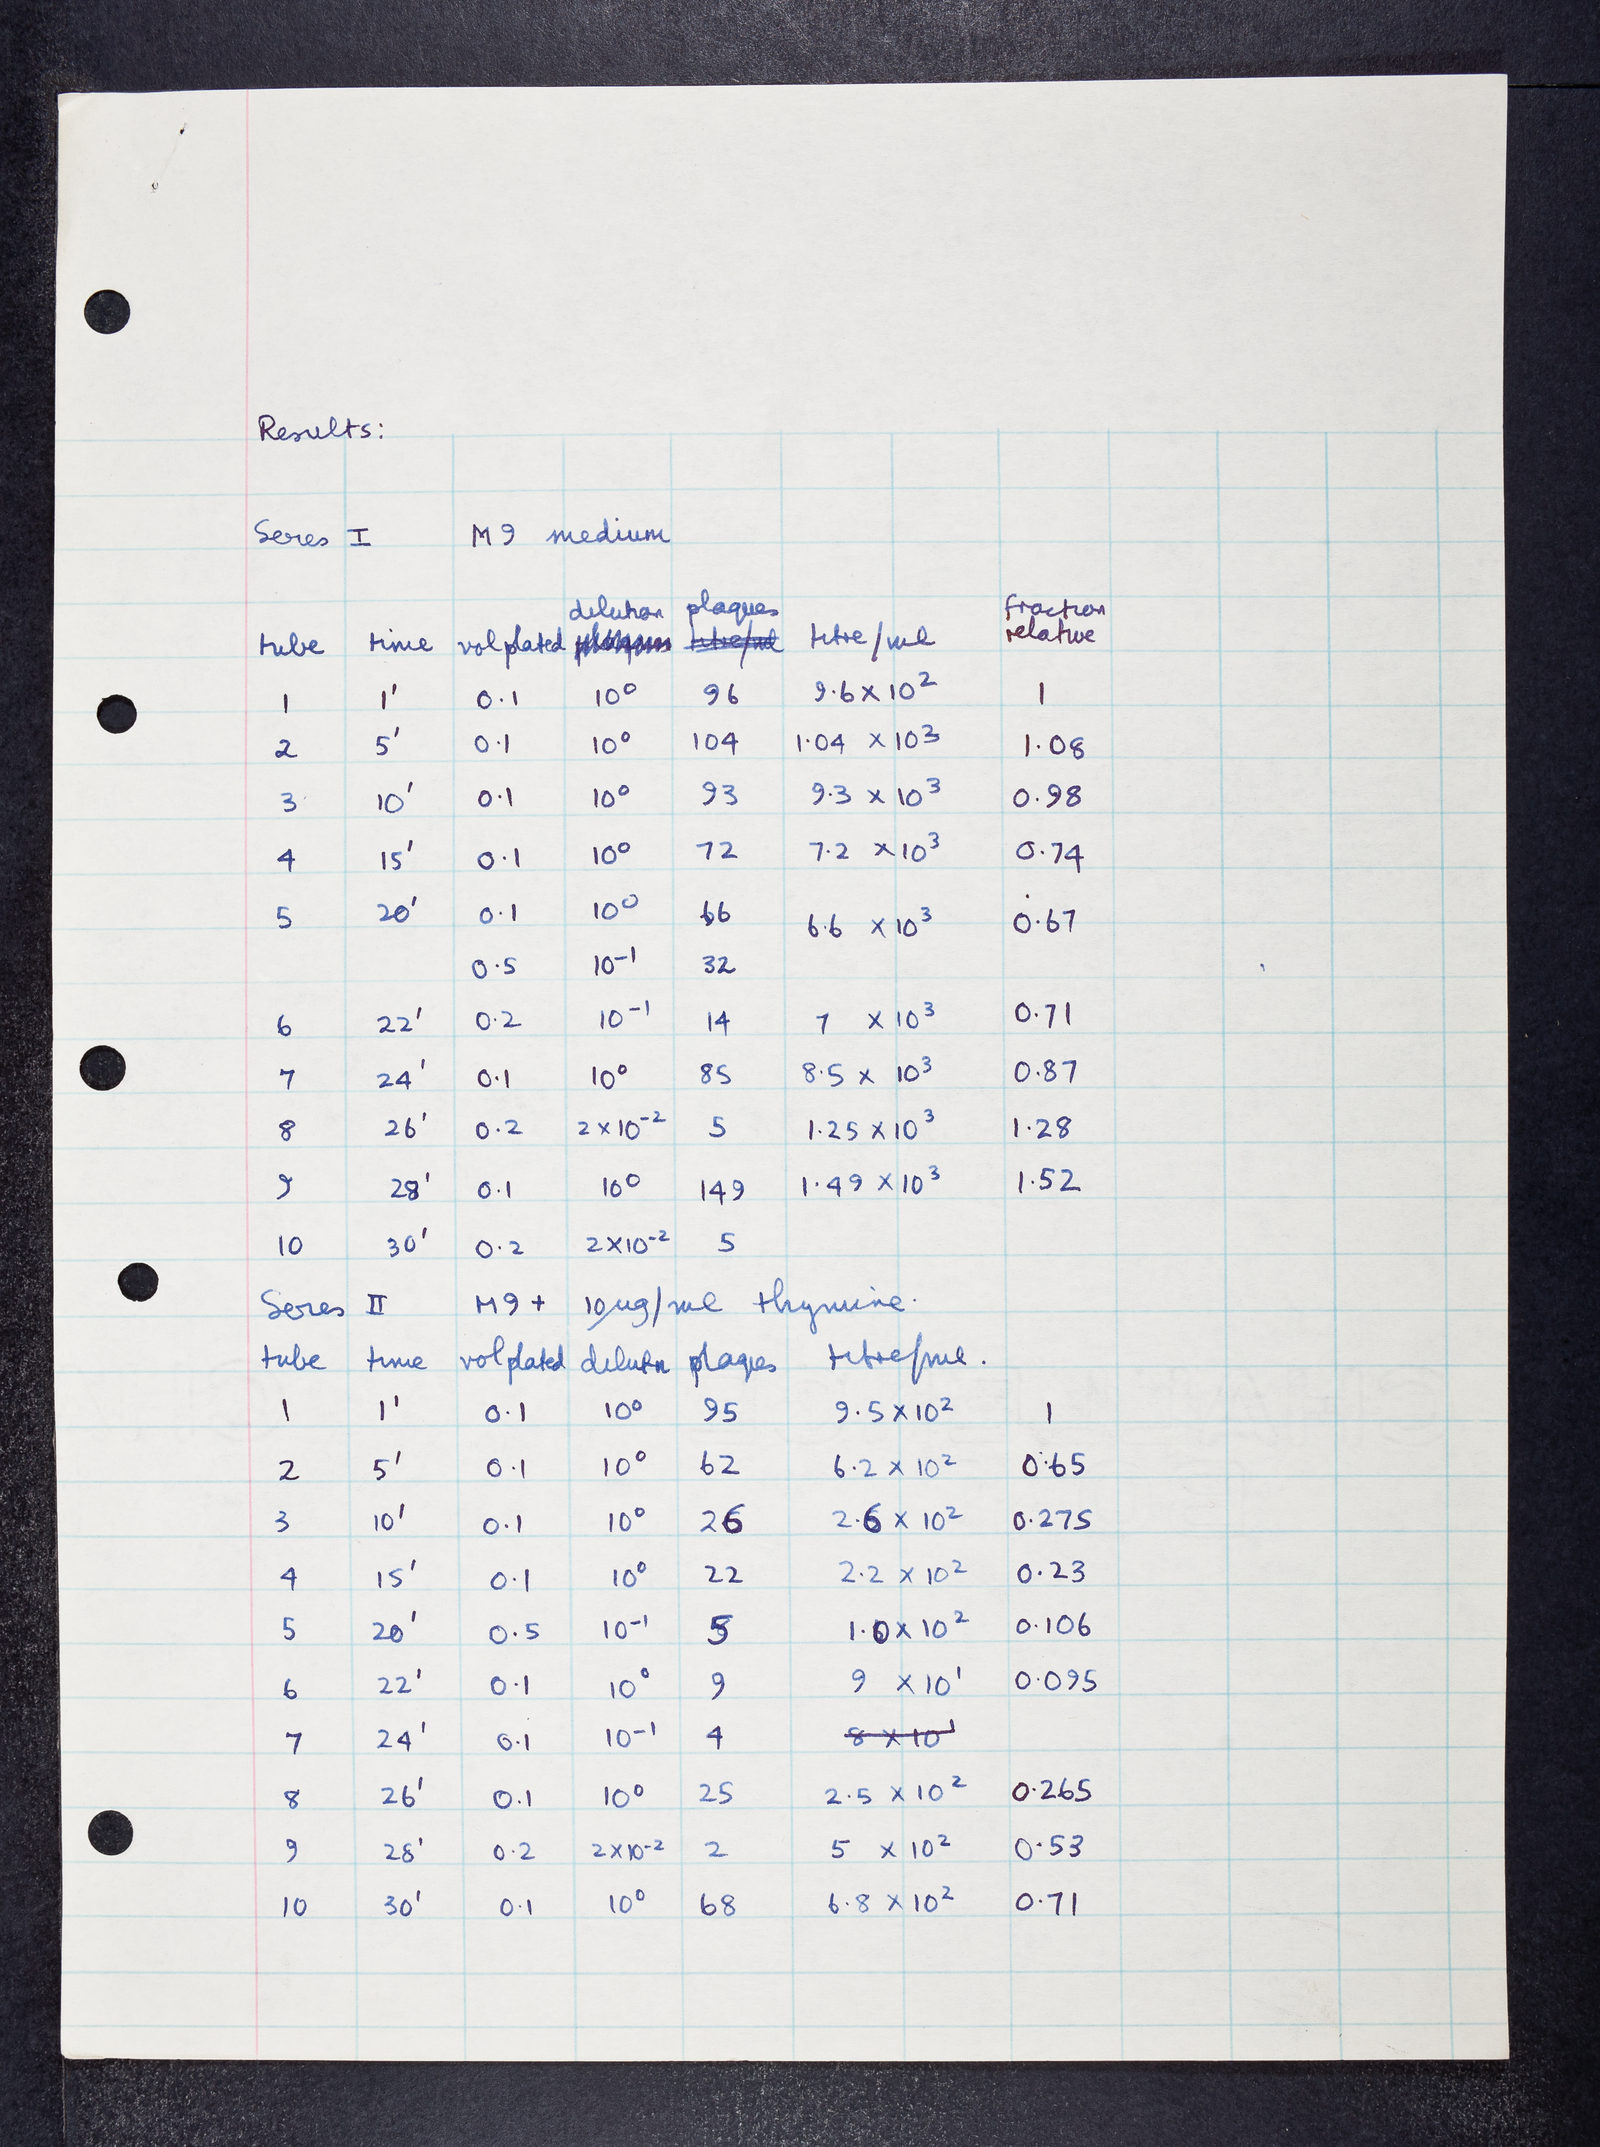 Results:
Seres I M9 medium
dilution plaques fraction
tube time vol plated titre/ml titre/ml relative
1 1' 0.1 10⁰ 96 9.6 x 10² 1
2 5' 0.1 10⁰ 104 1.04 x 10³ 1.08
3 10' 0.1 10⁰ 93 9.3 x 10³ 0.98
4 15' 0.1 10⁰ 72 7.2 x 10³ 0.74
5 20' 0.1 10⁰ 66 6.6 x 10³ 0.67
0.5 10⁻¹ 32
6 22' 0.2 10⁻¹ 14 7 x 10³ 0.71
7 24' 0.1 10⁰ 85 8.5 x 10³ 0.87
8 26' 0.2 2x10⁻² 5 1.25 x 10³ 1.28
9 28' 0.1 10⁰ 149 1.49 x 10³ 1.52
10 30' 0.2 2x10⁻² 5
Seres II M9 + 10µg/ml thymine.
tube time vol plated dilutn plaques titre/ml.
1 1' 0.1 10⁰ 95 9.5 x 10² 1
2 5' 0.1 10⁰ 62 6.2 x 10² 0.65
3 10' 0.1 10⁰ 26 2.6 x 10² 0.275
4 15' 0.1 10⁰ 22 2.2 x 10² 0.23
5 20' 0.5 10⁻¹ 5 1.0 x 10² 0.106
6 22' 0.1 10⁰ 9 9 x 10¹ 0.095
7 24' 0.1 10⁻¹ 4 8 x 10¹
8 26' 0.1 10⁰ 25 2.5 x 10² 0.265
9 28' 0.2 2x10⁻² 2 5 x 10² 0.53
10 30' 0.1 10⁰ 68 6.8 x 10² 0.71